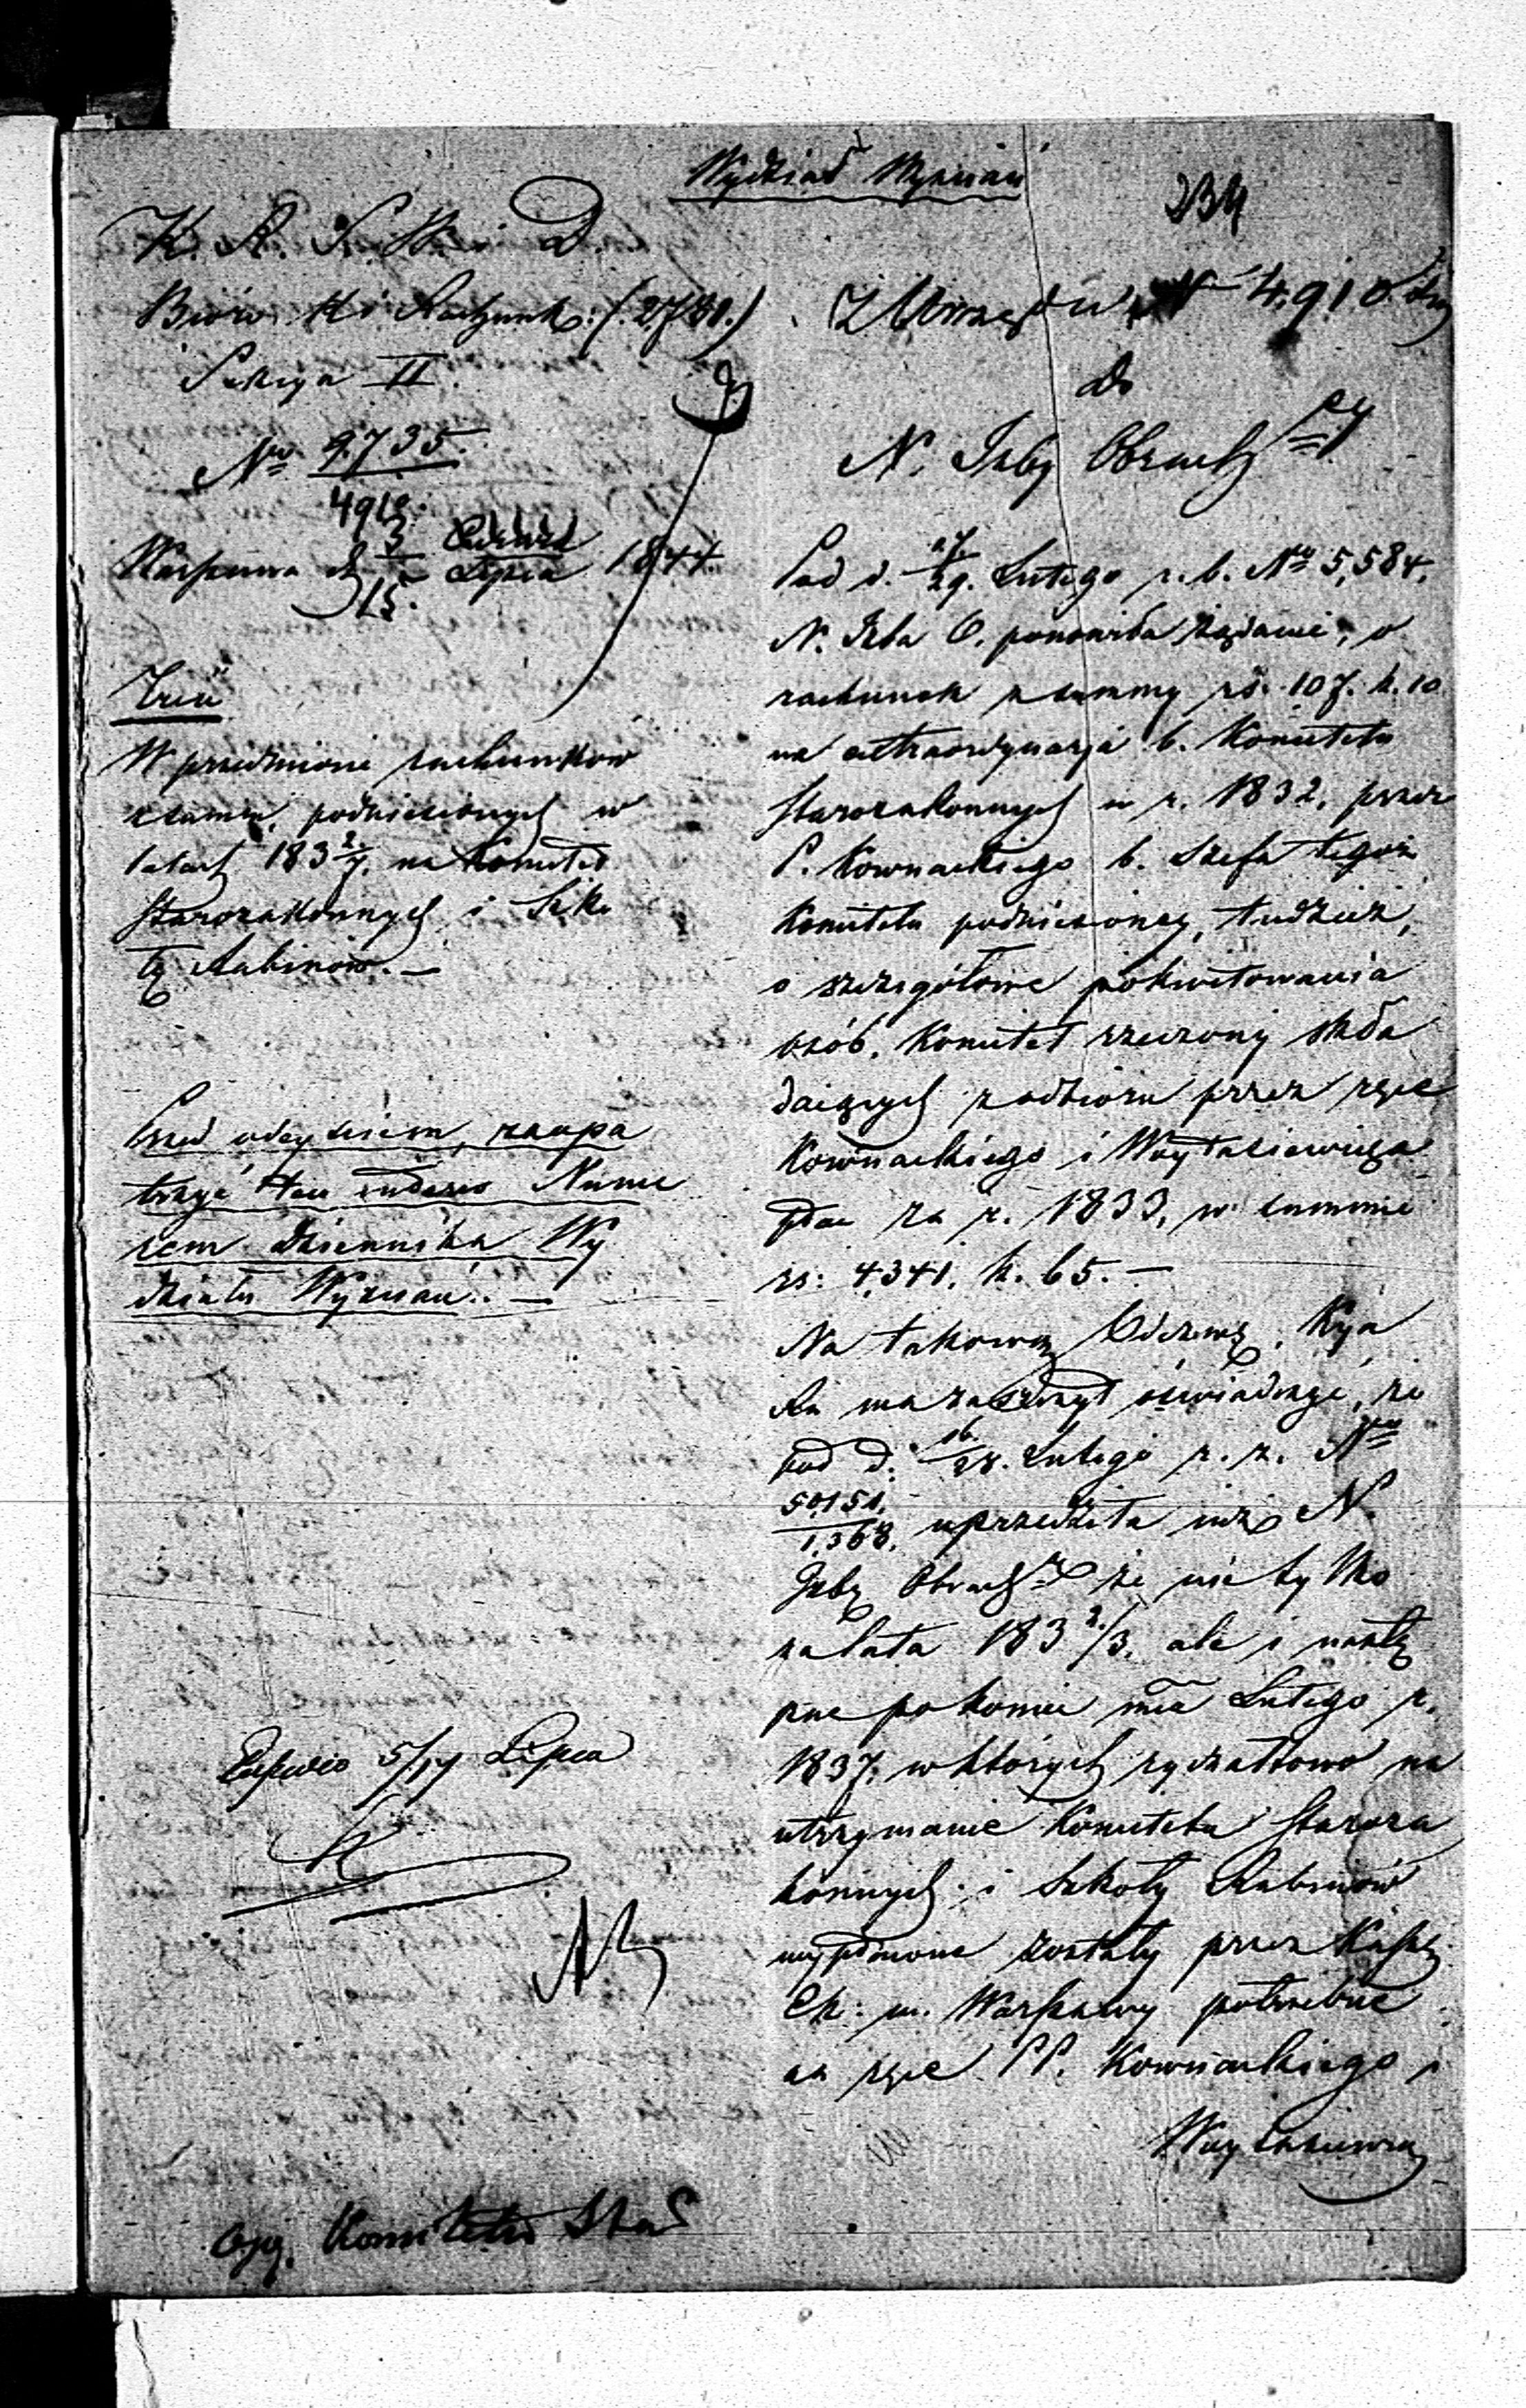 Wydział Wyznań
234
K. R. S. W. i D.
Bióro Kt i Rachunk: (2,781.)
Sekcya II.
No 9,735.
4910.
Warszawa d. 3/15 Czerwca Lipca 1844.
Treść
W przedmiocie rachunków
z summ, podniesionych w
latach 183 2/7. na Komitet
Starozakonnych i Szko
łę Rabinów. —
Przed odejściem, zaopa
trzyć tu Nume
rem dziennika Wy
działu Wyznań. —
5/17 Lipca
Komitetu Star
No 4,910
do
N. Izby Obrach=ej
Pod d. 17/29. Lutego r. b. No 5,584.
N. Izba O. ponowiła żądanie, o
rachunek z summy rs. 107. k. 10
na extraordynaria b. Komitetu
Starozakonnych w r. 1832, przez
P. Kownackiego b. Szefa tegoż
Komitetu podniesioney, tudzież,
o szczegółowe pokwitowania
osób, Komitet rzeczony skła
daiących z odbioru przez ręce
Kownackiego i Woytasiewicza
płac za r. 1833, w summie
rs: 4,341. k. 65. —
Na takową Odezwę, Kom
Rz ma zaszczyt oświadczyć, że
pod d. 16/28. Lutego r. z. No
50,151./1,368. uprzedziła iuż N.
Izbę Obrach że nie tylko
za lata 183 2/3. ale i nastę
pne po koniec mca Lutego r.
1837, w których ryczałtowo na
utrzymanie Komitetu Staroza
konnych i Szkoły Rabinów
wypłacone zostały przez Kassę
Ek: m. Warszawy potrzebne
na ręce PP. Kownackiego i
Woytasiewicza